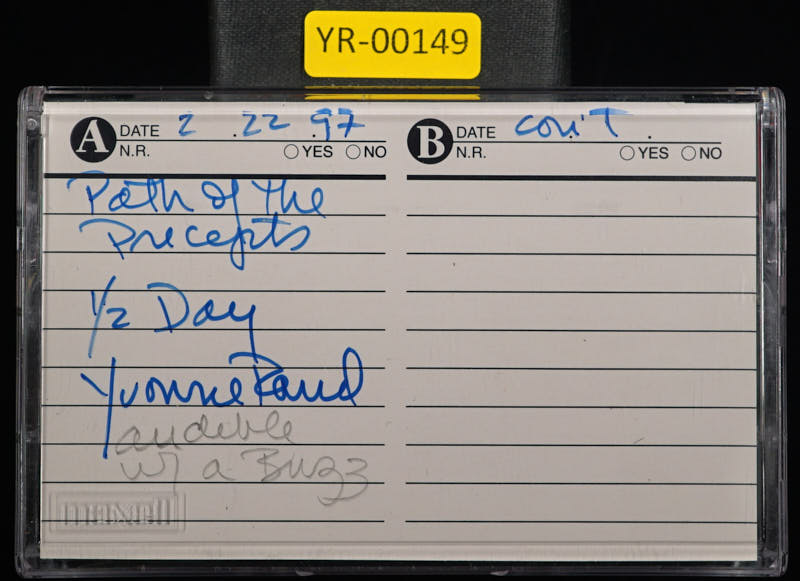 YR-00149
A DATE 2 . 22 . 97
N.R. YES NO
B DATE con't .
N.R. YES NO
Path of the
Precepts
1/2 Day
Yvonne Rand
audible
w/ a Buzz
maxell